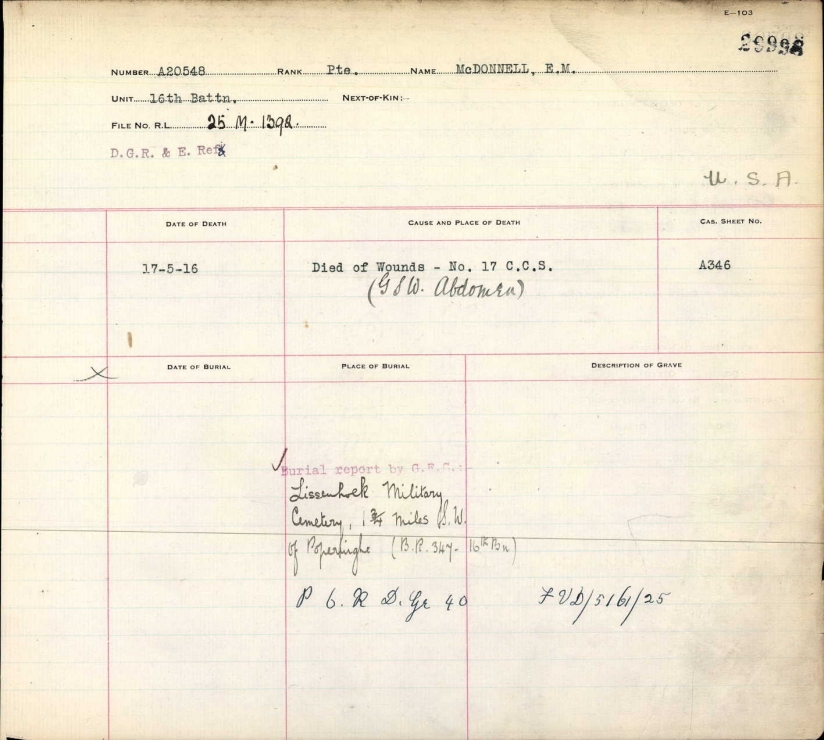 E—103
29998
NUMBER A20548 RANK Pte. NAME McDONNELL, E.M.
UNIT 16th Battn. NEXT-OF-KIN:—
FILE NO. R.L. 25 M. 1392.
D.G.R. & E. Ref
U. S. A.
DATE OF DEATH CAUSE AND PLACE OF DEATH CAS. SHEET NO.
17-5-16 Died of Wounds - No. 17 C.C.S. A346
(GSW. Abdomen)
DATE OF BURIAL PLACE OF BURIAL DESCRIPTION OF GRAVE
Burial report by G.R.C.:-
Lissenhoek Military
Cemetery, 1 3/4 miles S.W.
of Poperinghe (B.R. 347- 16th Bn)
P 6. R D. Gr 40 FVD/5161/25